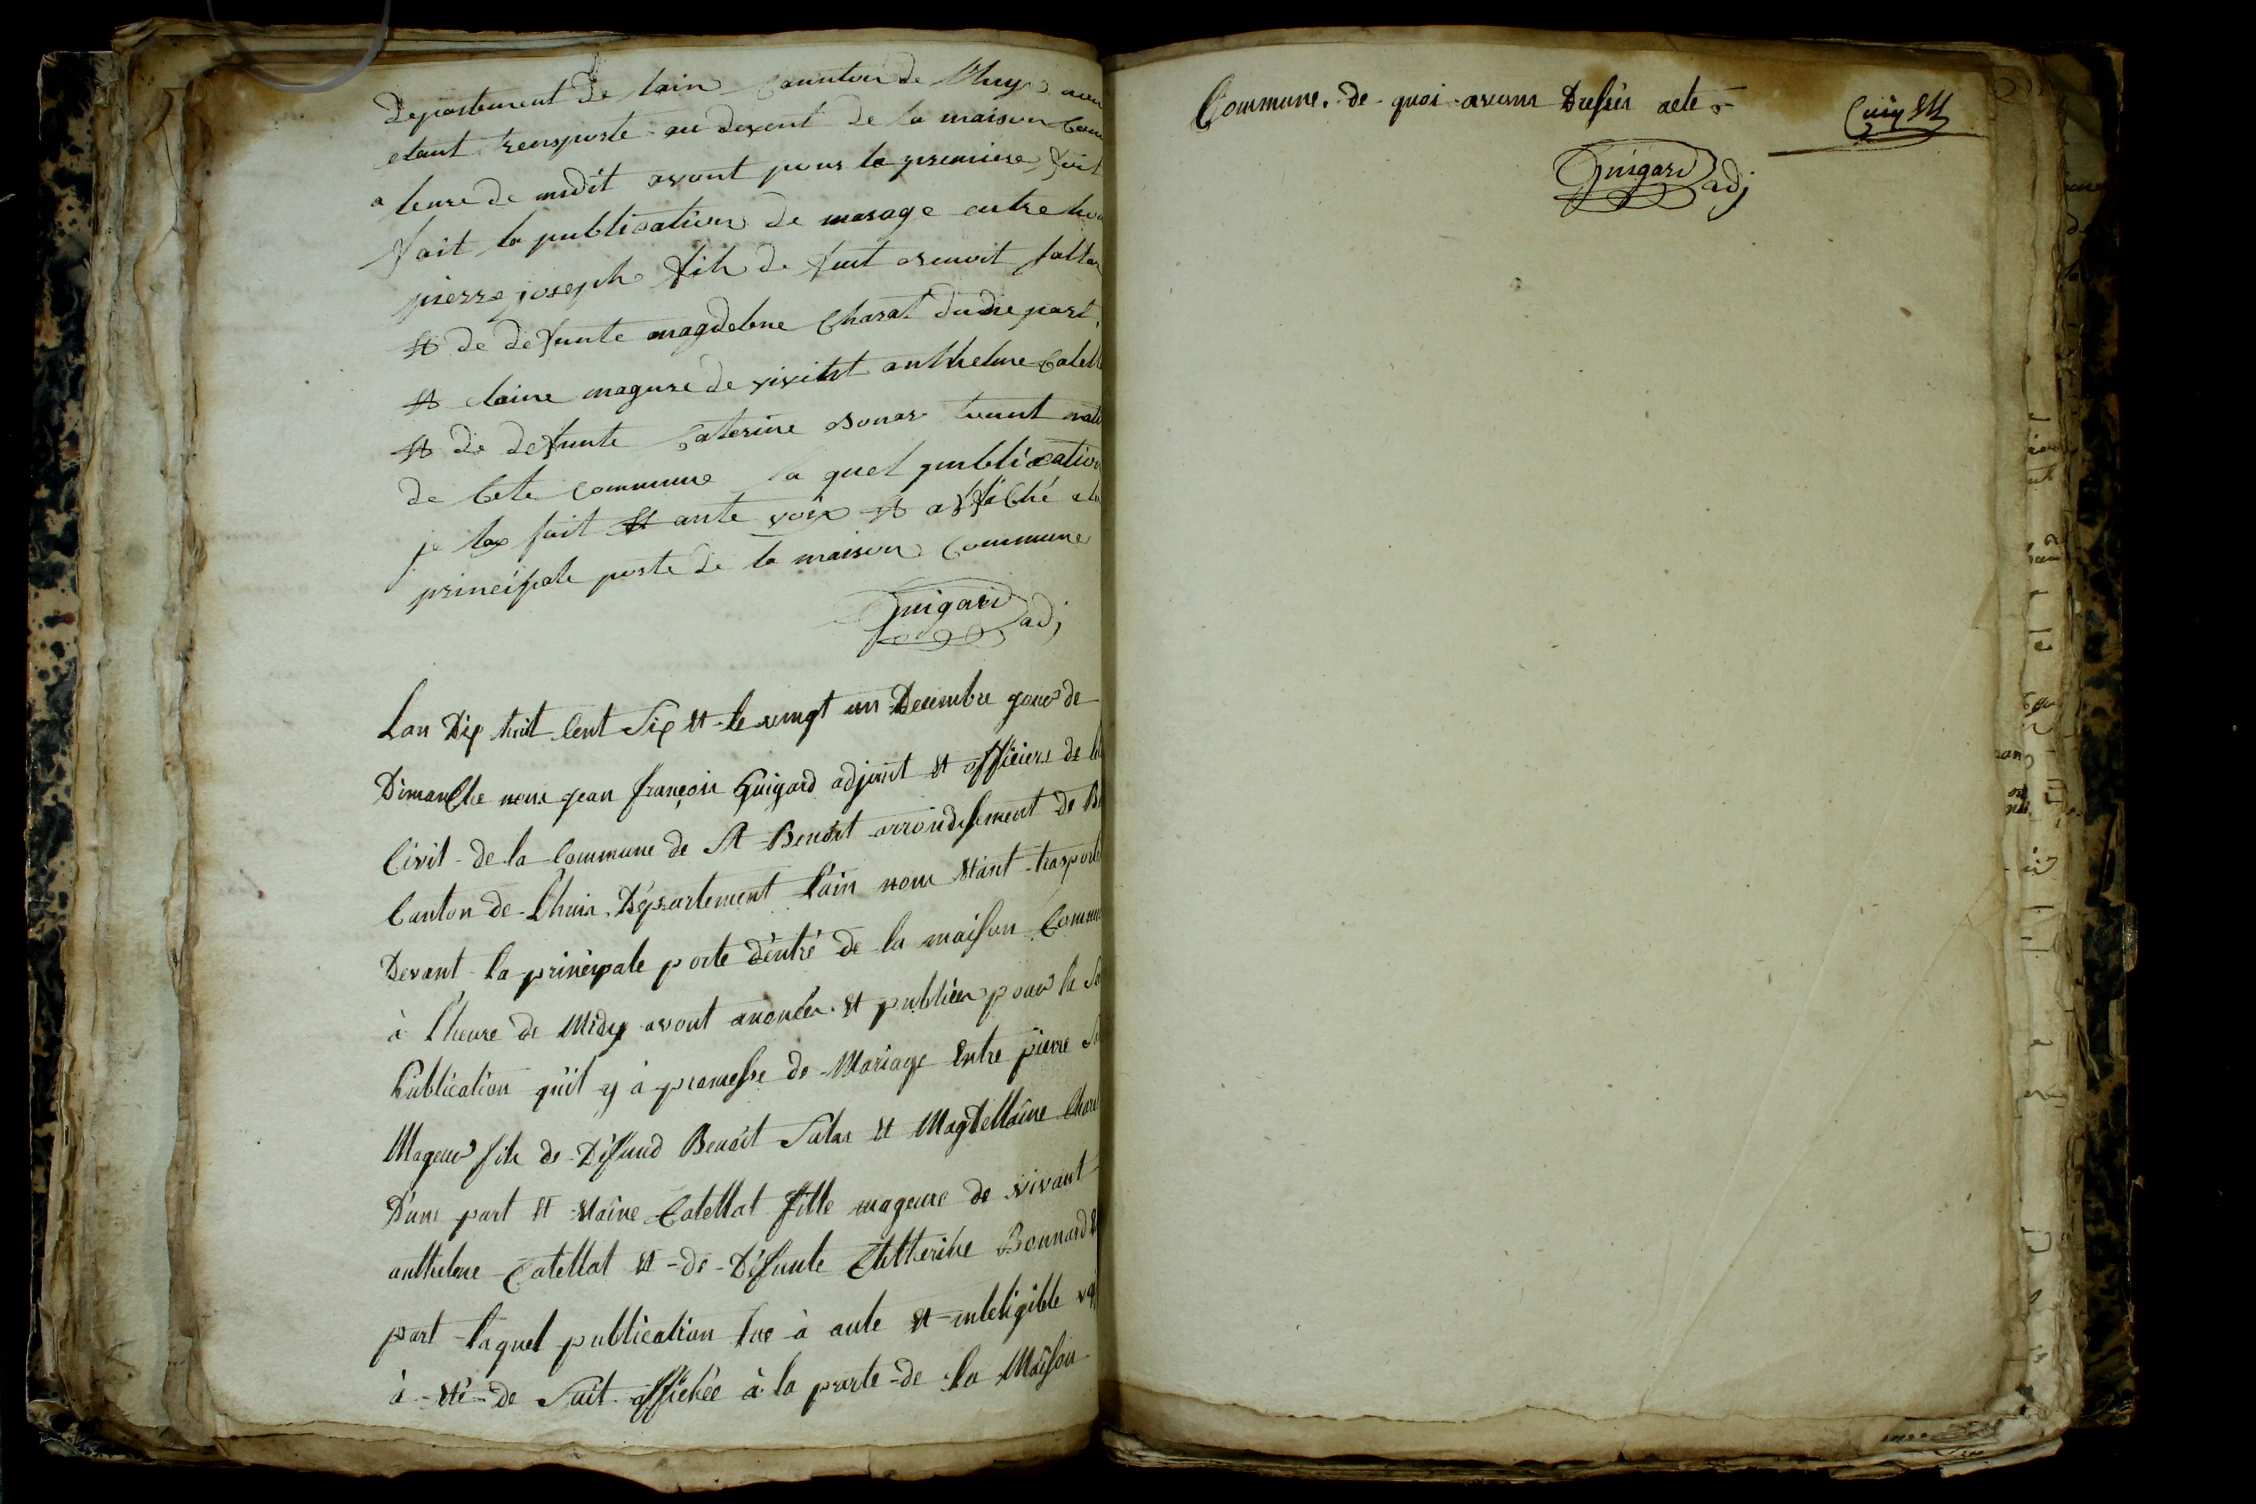 departement de lain Cannton de
etant transporte au devent de la maison
a leure de midit avont pour la premiere foit
fait la publication de marage entre
pierre joseph fils de fut Benoit
et de defunte magdelene Charat dudne part,
et etaine magure de vivitst anthelme
et de defunte Caterine Bonar
de Cete Commune la quel publication
je lax fait et aute voix et affiché a
principale porte de la maison Commune
Guigard adj
Lan Dix huit Cent Six et le vingt un Decembre jour de
Dimanche nous jean françois Guigard adjoint et officiers de
Civil de la Commune de St Benoit arrondissement de
Canton de Lhuis, Département Lain nous étant trasporté
Devant la principale porte d'entré de la maison
à l'heure de Midy avont anoncer et publier pour la
Publication quil y à promesse de Mariage Entre pierre
Mageur fils de Defund Benoit Salar et Magdellaine
D'une part et etaine Catellat fille mageure de vivant
anthelme Catellat et de Défunte Catherine Bonnard
part laquel publication lue à aute et inteligible
à été de Suit affichée à la porte de la Maison
Commune. de quoi avons Dressér acte
Guigard adj